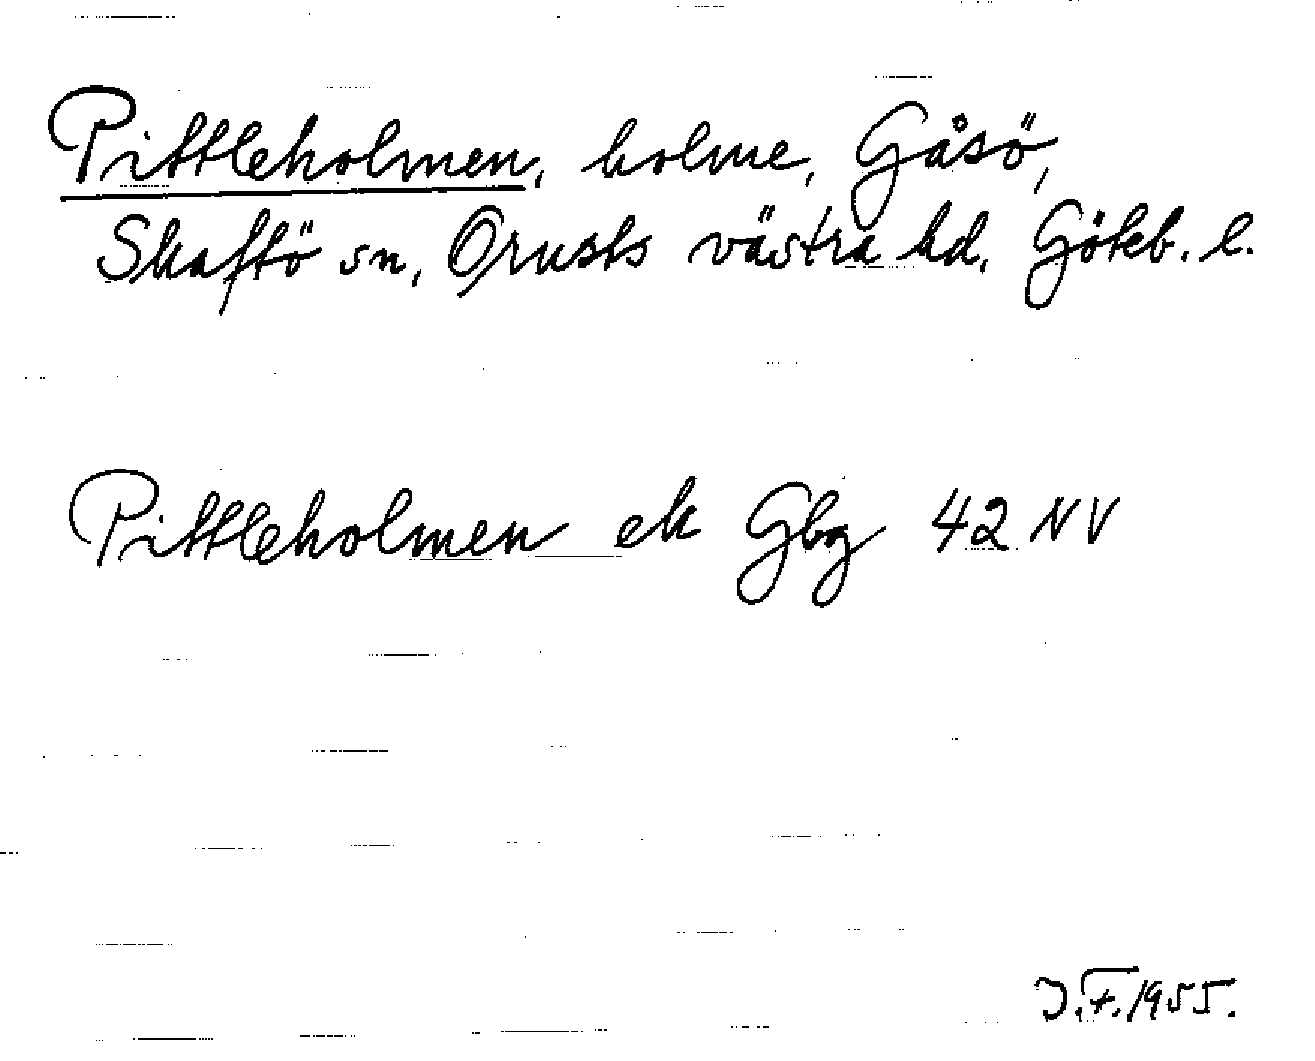 Pittleholmen, holme, Gåsö,
Skaftö sn, Orusts västra hd, Göteb. l.
Pittleholmen ek Gbg 42 NV
J.F. 1955.